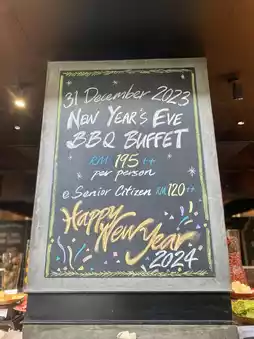 31 December 2023
NEW YEAR'S EVE
BBQ BUFFET
RM 195 ++
per person
@ Senior Citizen RM 120 ++
Happy
New Year
2024